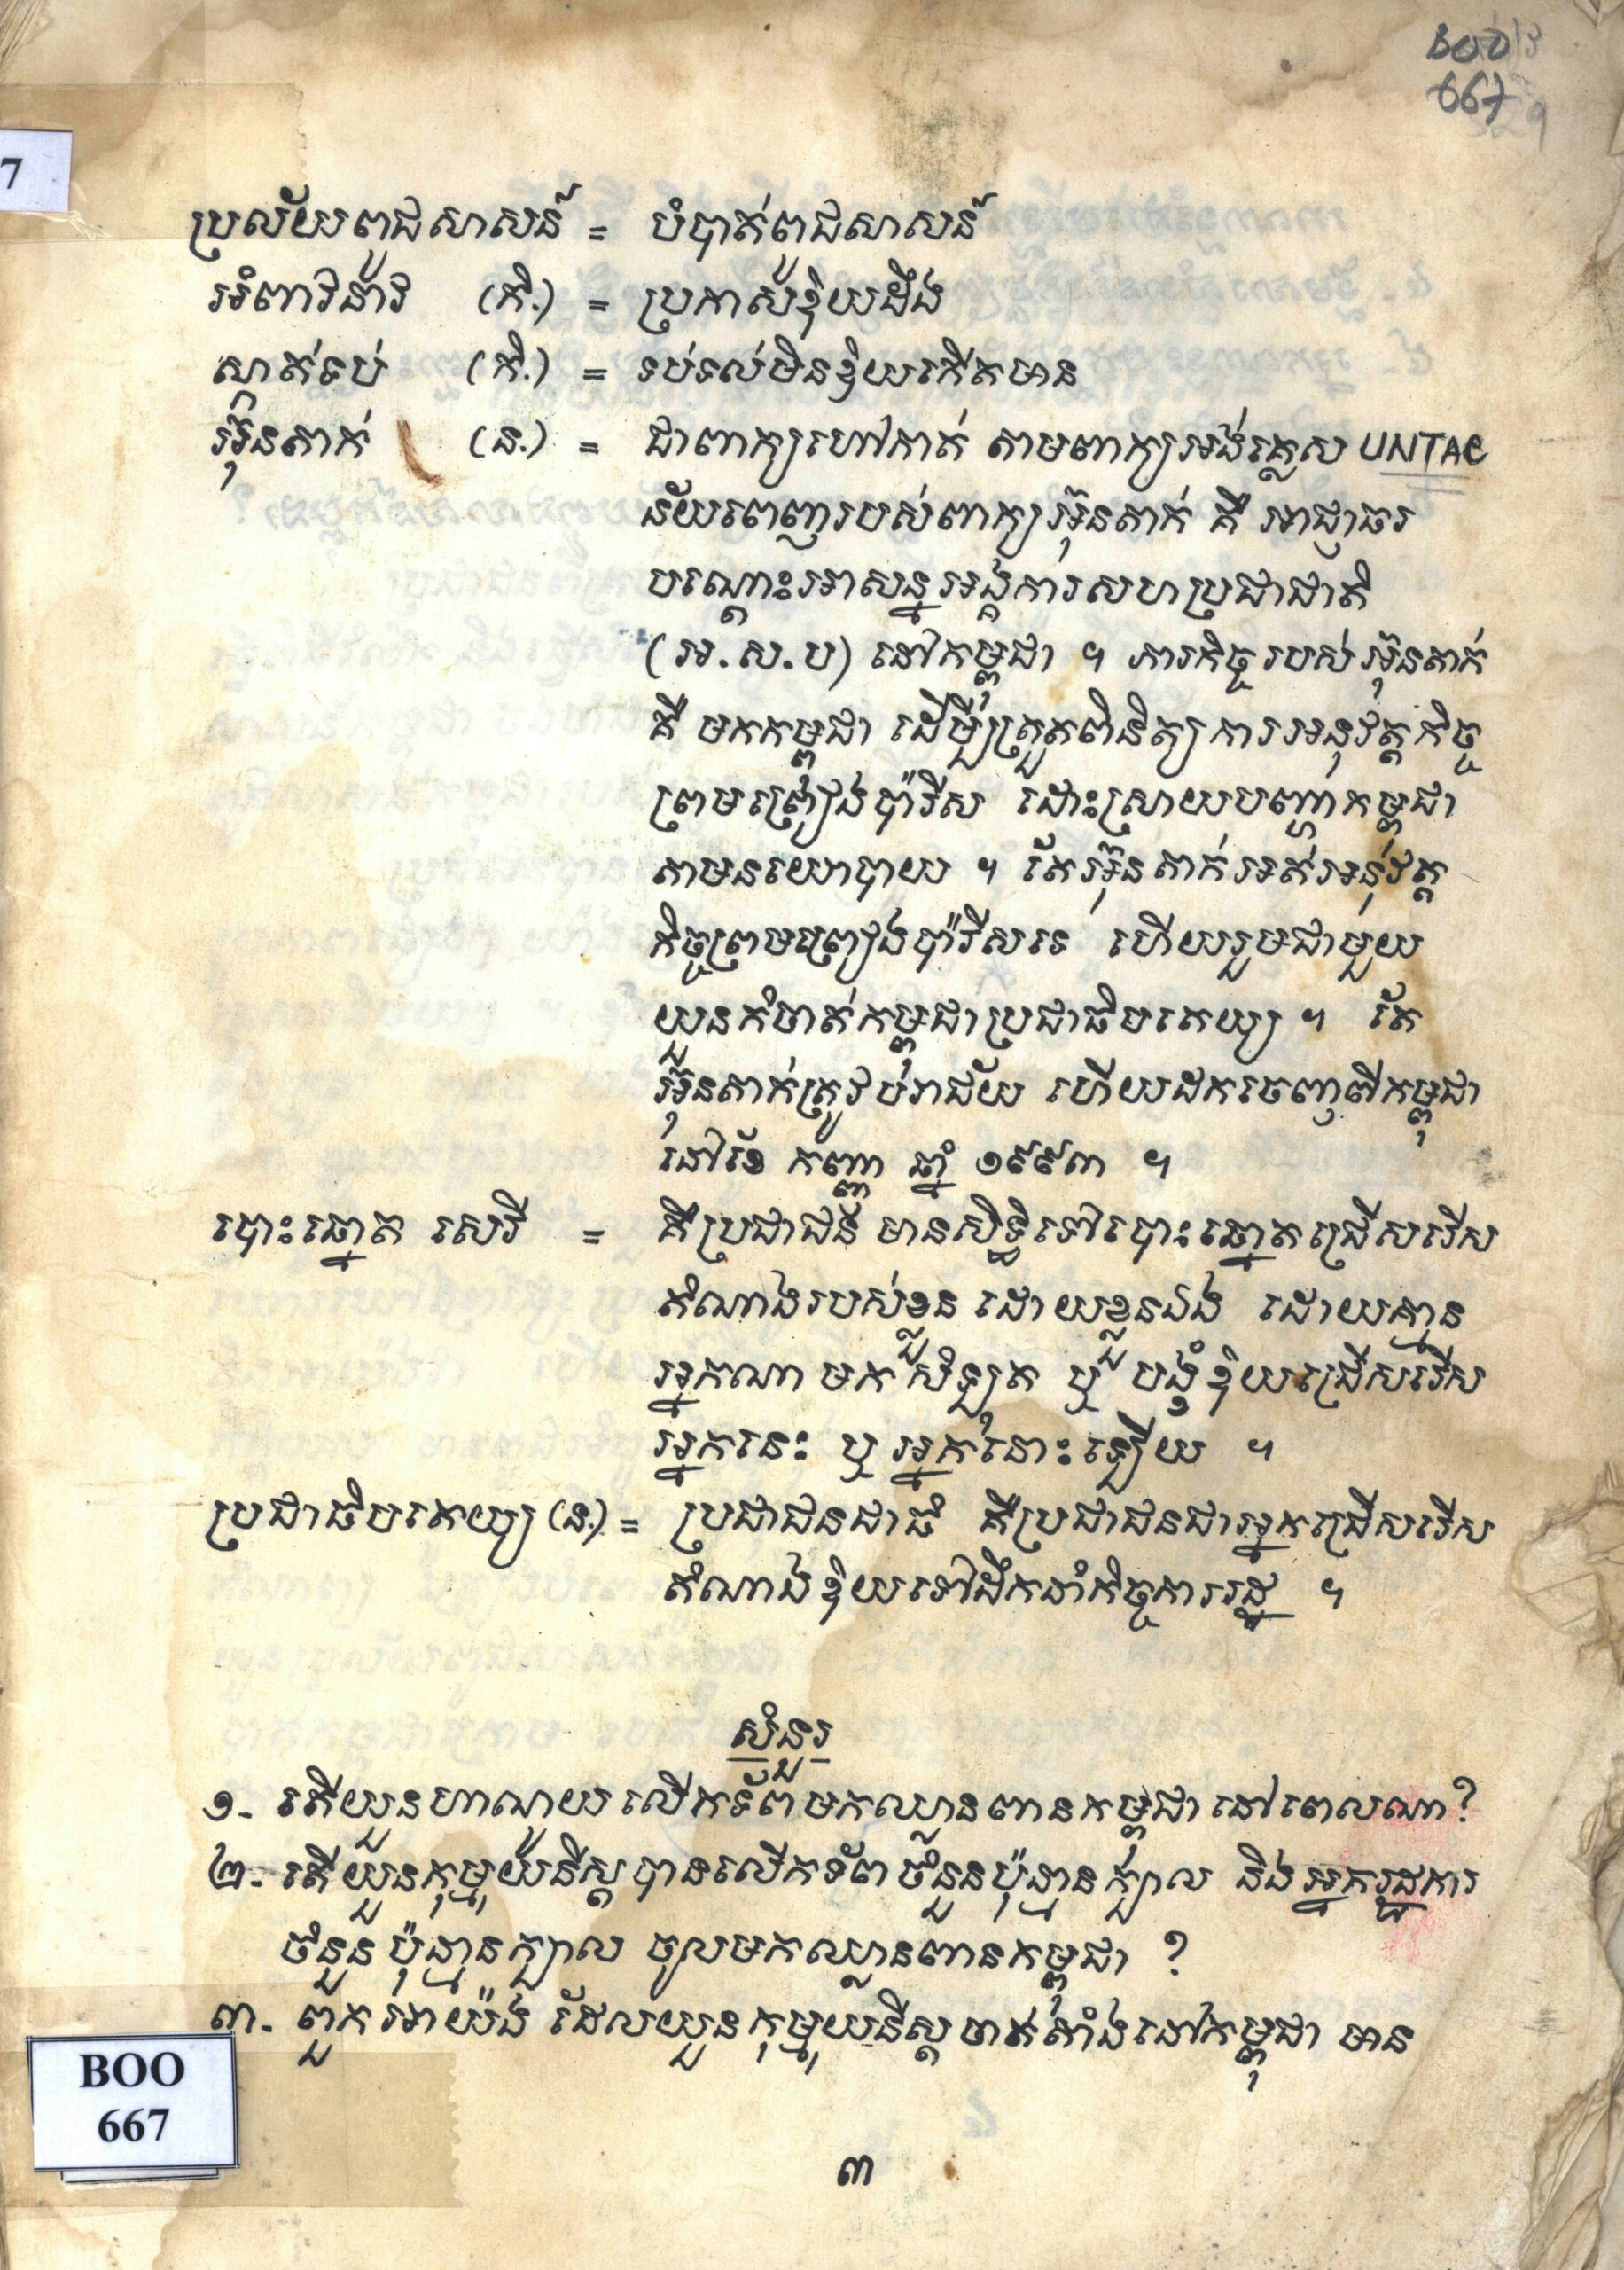 BOO
667
7
ប្រល័យពូជសាសន៍ = បំបាត់ពូជសាសន៍
អំពាវនាវ (កិ.) = ប្រកាសឱ្យដឹង
ស្កាត់ទប់ (កិ.) = ទប់ទល់មិនឱ្យកើតមាន
អ៊ុនតាក់ (ន.) = ជាពាក្យហៅកាត់ តាមពាក្យអង់គ្លេស UNTAC
ន័យពេញរបស់ពាក្យអ៊ុនតាក់ គឺ អាជ្ញាធរ
បណ្ដោះអាសន្នអង្គការសហប្រជាជាតិ
(អ.ស.ប) នៅកម្ពុជា ។ ភារកិច្ចរបស់អ៊ុនតាក់
គឺ មកកម្ពុជា ដើម្បីត្រួតពិនិត្យការអនុវត្តកិច្ច
ព្រមព្រៀងប៉ារីស ដោះស្រាយបញ្ហាកម្ពុជា
តាមនយោបាយ ។ តែអ៊ុនតាក់អត់អនុវត្ត
កិច្ចព្រមព្រៀងប៉ារីសទេ ហើយរួមជាមួយ
យួនកំចាត់កម្ពុជាប្រជាធិបតេយ្យ ។ តែ
អ៊ុនតាក់ត្រូវបរាជ័យ ហើយដកចេញពីកម្ពុជា
នៅខែ កញ្ញា ឆ្នាំ ១៩៩៣ ។
បោះឆ្នោត សេរី = គឺប្រជាជន មានសិទ្ធិទៅបោះឆ្នោតជ្រើសរើស
តំណាងរបស់ខ្លួន ដោយខ្លួនឯង ដោយគ្មាន
អ្នកណា មកសិទ្បូត ឬ បង្ខំឱ្យជ្រើសរើស
អ្នកនេះ ឬ អ្នកនោះឡើយ ។
ប្រជាធិបតេយ្យ (ន.) = ប្រជាជនជាធំ គឺប្រជាជនជាអ្នកជ្រើសរើស
តំណាងឱ្យទៅដឹកនាំកិច្ចការរដ្ឋ ។
សំនួរ
១- តើយួនហាណូយ លើកទ័ពមកឈ្លានពានកម្ពុជា នៅពេលណា?
២- តើយួនកុម្មុយនីស្តបានលើកទ័ពចំនួនប៉ុន្មានក្បាល និងអ្នករដ្ឋការ
ចំនួនប៉ុន្មានក្បាល ចូលមកឈ្លានពានកម្ពុជា ?
៣- ពួកអាយ៉ង ដែលយួនកុម្មុយនីស្តចាត់តាំងនៅកម្ពុជា មាន
BOO
667
៣